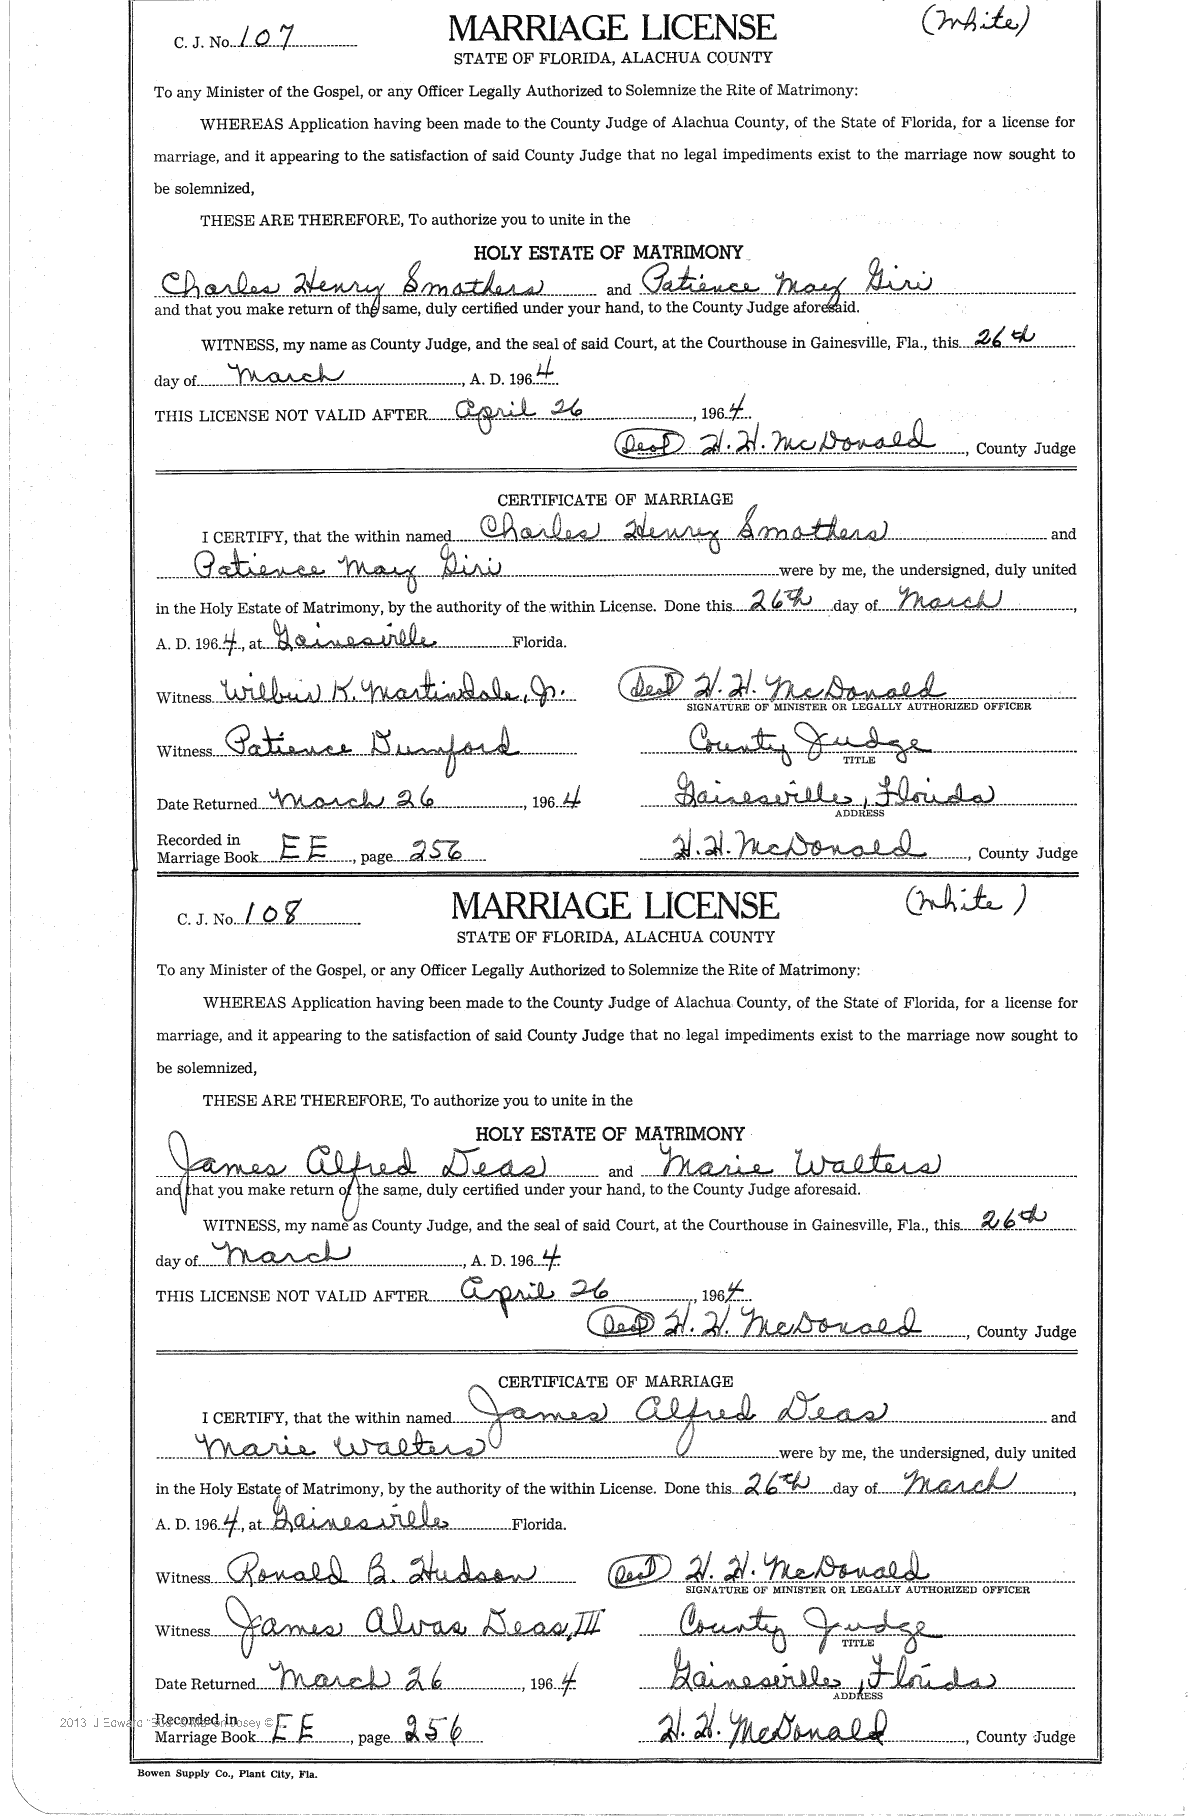 C. J. No. 107 MARRIAGE LICENSE (White)
STATE OF FLORIDA, ALACHUA COUNTY
To any Minister of the Gospel, or any Officer Legally Authorized to Solemnize the Rite of Matrimony:
WHEREAS Application having been made to the County Judge of Alachua County, of the State of Florida, for a license for
marriage, and it appearing to the satisfaction of said County Judge that no legal impediments exist to the marriage now sought to
be solemnized,
THESE ARE THEREFORE, To authorize you to unite in the
HOLY ESTATE OF MATRIMONY
Charles Henry Smathers and Patience May Giri
and that you make return of the same, duly certified under your hand, to the County Judge aforesaid.
WITNESS, my name as County Judge, and the seal of said Court, at the Courthouse in Gainesville, Fla., this 26th
day of March, A. D. 1964
THIS LICENSE NOT VALID AFTER April 26, 1964
(Seal) H. H. McDonald, County Judge
CERTIFICATE OF MARRIAGE
I CERTIFY, that the within named Charles Henry Smathers and
Patience May Giri were by me, the undersigned, duly united
in the Holy Estate of Matrimony, by the authority of the within License. Done this 26th day of March,
A. D. 1964, at Gainesville Florida.
Witness Wilbur K. Martindale, Jr. (Seal) H. H. McDonald
SIGNATURE OF MINISTER OR LEGALLY AUTHORIZED OFFICER
Witness Patience Dumford County Judge
TITLE
Date Returned March 26, 1964 Gainesville, Florida
ADDRESS
Recorded in
Marriage Book EE, page 256 H. H. McDonald, County Judge
C. J. No. 108 MARRIAGE LICENSE (White)
STATE OF FLORIDA, ALACHUA COUNTY
To any Minister of the Gospel, or any Officer Legally Authorized to Solemnize the Rite of Matrimony:
WHEREAS Application having been made to the County Judge of Alachua County, of the State of Florida, for a license for
marriage, and it appearing to the satisfaction of said County Judge that no legal impediments exist to the marriage now sought to
be solemnized,
THESE ARE THEREFORE, To authorize you to unite in the
HOLY ESTATE OF MATRIMONY
James Alfred Deas and Marie Walters
and that you make return of the same, duly certified under your hand, to the County Judge aforesaid.
WITNESS, my name as County Judge, and the seal of said Court, at the Courthouse in Gainesville, Fla., this 26th
day of March, A. D. 1964
THIS LICENSE NOT VALID AFTER April 26, 1964
(Seal) H. H. McDonald, County Judge
CERTIFICATE OF MARRIAGE
I CERTIFY, that the within named James Alfred Deas and
Marie Walters were by me, the undersigned, duly united
in the Holy Estate of Matrimony, by the authority of the within License. Done this 26th day of March,
A. D. 1964, at Gainesville Florida.
Witness Ronald B. Hudson (Seal) H. H. McDonald
SIGNATURE OF MINISTER OR LEGALLY AUTHORIZED OFFICER
Witness James Alvas Deas, III County Judge
TITLE
Date Returned March 26, 1964 Gainesville, Florida
ADDRESS
Recorded in
2013 J Edward
Marriage Book EE, page 256 H. H. McDonald, County Judge
Bowen Supply Co., Plant City, Fla.